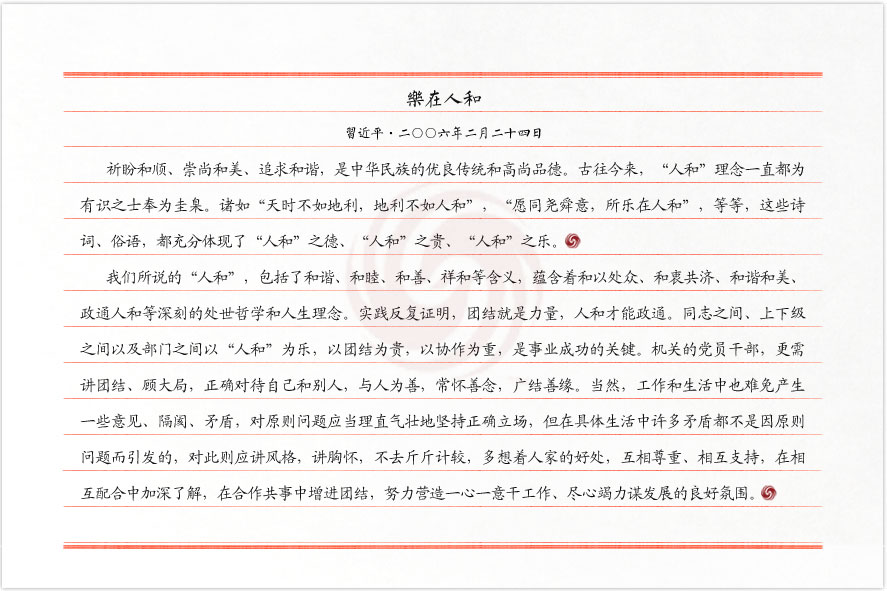 樂在人和
習近平·二〇〇六年二月二十四日
祈盼和顺、崇尚和美、追求和谐，是中华民族的优良传统和高尚品德。古往今来，“人和”理念一直都为
有识之士奉为圭臬。诸如“天时不如地利，地利不如人和”，“愿同尧舜意，所乐在人和”，等等，这些诗
词、俗语，都充分体现了“人和”之德、“人和”之贵、“人和”之乐。
我们所说的“人和”，包括了和谐、和睦、和善、祥和等含义，蕴含着和以处众、和衷共济、和谐和美、
政通人和等深刻的处世哲学和人生理念。实践反复证明，团结就是力量，人和才能政通。同志之间、上下级
之间以及部门之间以“人和”为乐，以团结为贵，以协作为重，是事业成功的关键。机关的党员干部，更需
讲团结、顾大局，正确对待自己和别人，与人为善，常怀善念，广结善缘。当然，工作和生活中也难免产生
一些意见、隔阂、矛盾，对原则问题应当理直气壮地坚持正确立场，但在具体生活中许多矛盾都不是因原则
问题而引发的，对此则应讲风格，讲胸怀，不去斤斤计较，多想着人家的好处，互相尊重、相互支持，在相
互配合中加深了解，在合作共事中增进团结，努力营造一心一意干工作、尽心竭力谋发展的良好氛围。